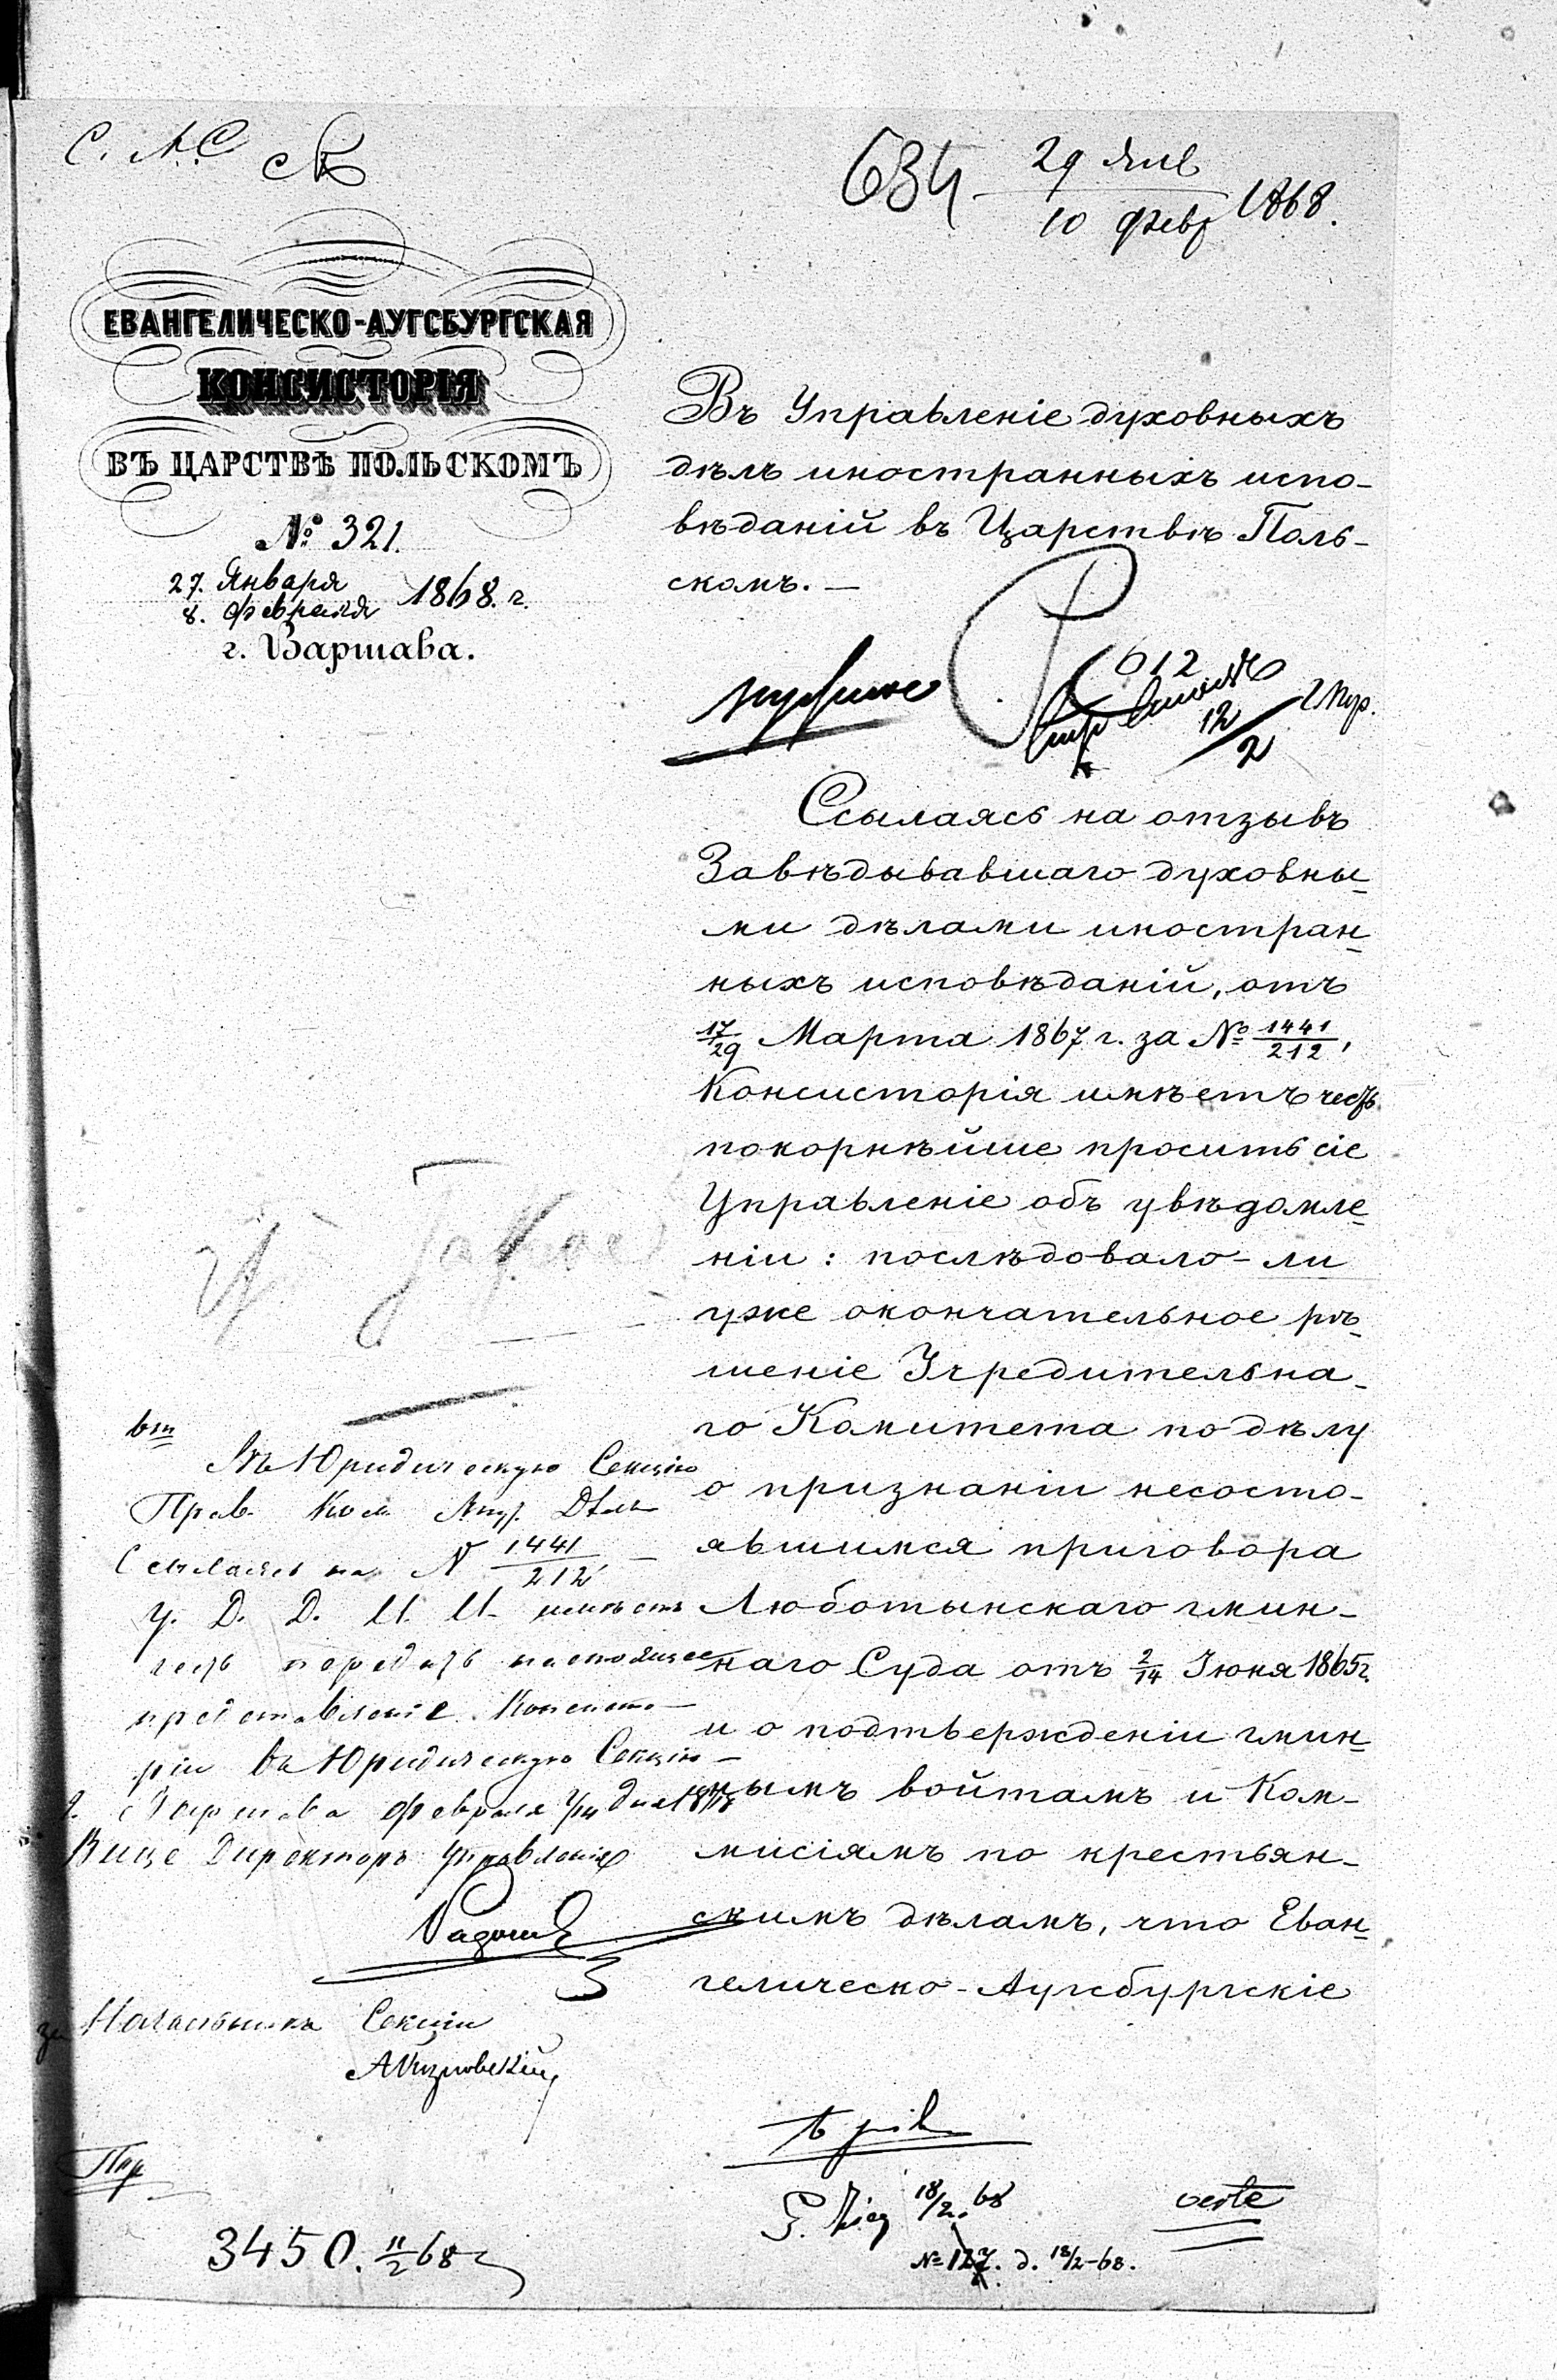 С. А. С
634 29 Янв
10 февр 1868.
ЕВАНГЕЛИЧЕСКО-АУГСБУРГСКАЯ
КОНСИСТОРІЯ
ВЪ ЦАРСТВѢ ПОЛЬСКОМЪ
№ 321.
27. Января
8. февраля 1868. г.
г. Варшава.
Въ Управленіе духовныхъ
дѣлъ иностранныхъ испо-
вѣданій въ Царствѣ Поль-
скомъ. —
612
12/2
Ссылаясь на отзывъ
Завѣдывавшаго духовны-
ми дѣлами иностран-
ныхъ исповѣданій, отъ
17/29 Марта 1867 г. за № 1441/212,
Консисторія имѣетъ честь
покорнѣйше просить сіе
Управленіе объ увѣдомле-
ніи: послѣдовало-ли
уже окончательное рѣ-
шеніе Учредительна-
го Комитета по дѣлу
о признаніи несосто-
явшимся приговора
Люботынскаго гмин-
наго Суда отъ 2/14 Іюня 1865 г.
и о подтвержденіи гмин-
нымъ войтамъ и Ком-
мисіямъ по крестьян-
скимъ дѣламъ, что Еван-
гелическо-Аугсбургскіе
Въ Юридическую Секцію
Прав. Ком. Внут. Дѣлъ
Ссылаясь на N 1441/212 —
У. Д. Д. И. И. имѣетъ
честь передать настоящее
представленіе Консисто-
ріи въ Юридическую Секцію —
г. Варшава февраля 2/14 дня 1868
Вице Директоръ Управленія
за Начальника Секціи
3450. 11/2 68
18/2 68
verte
№ 127. д. 18/2-68.